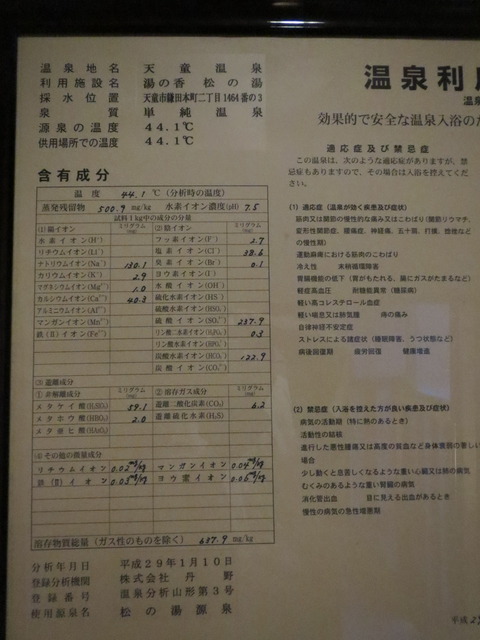 温泉地名 天童温泉
利用施設名 湯の香 松の湯
採水位置 天童市鎌田本町二丁目1464番の3
泉質 単純温泉
源泉の温度 44.1℃
供用場所での温度 44.1℃
含有成分
温度 44.1 ℃ (分析時の温度)
蒸発残留物 500.9 mg/kg 水素イオン濃度(pH) 7.5
試料1kg中の成分の分量
(1)陽イオン ミリグラム (mg) (2)陰イオン ミリグラム (mg)
水素イオン(H⁺) フッ素イオン(F⁻) 2.7
リチウムイオン(Li⁺) 塩素イオン(Cl⁻) 38.6
ナトリウムイオン(Na⁺) 130.1 臭素イオン(Br⁻) 0.1
カリウムイオン(K⁺) 2.9 ヨウ素イオン(I⁻)
マグネシウムイオン(Mg²⁺) 1.0 水酸イオン(OH⁻)
カルシウムイオン(Ca²⁺) 40.3 硫化水素イオン(HS⁻)
アルミニウムイオン(Al³⁺) 硫酸水素イオン(HSO₄⁻)
マンガンイオン(Mn²⁺) 硫酸イオン(SO₄²⁻) 237.9
鉄(Ⅱ)イオン(Fe²⁺) リン酸二水素イオン(H₂PO₄⁻) 0.3
リン酸水素イオン(HPO₄²⁻)
炭酸水素イオン(HCO₃⁻) 122.9
炭酸イオン(CO₃²⁻)
③遊離成分
①非解離成分 ミリグラム (mg) ②溶存ガス成分 ミリグラム (mg)
メタケイ酸(H₂SiO₃) 59.1 遊離二酸化炭素(CO₂) 6.2
メタホウ酸(HBO₂) 2.0 遊離硫化水素(H₂S)
メタ亜ヒ酸(HAsO₂)
④その他の微量成分
リチウムイオン 0.02mg/kg マンガンイオン 0.04mg/kg
鉄(Ⅱ)イオン 0.03mg/kg ヨウ素イオン 0.05mg/kg
溶存物質総量(ガス性のものを除く) 637.9 mg/kg
分析年月日 平成29年1月10日
登録分析機関 株式会社丹野
登録番号 温泉分析山形第3号
使用源泉名 松の湯源泉
温泉利
温泉
効果的で安全な温泉入浴の
適応症及び禁忌症
この温泉は、次のような適応症がありますが、禁
忌症もありますので、その場合は入浴を控えてくだ
さい。
(1) 適応症(温泉が効く疾患及び症状)
筋肉又は関節の慢性的な痛み又はこわばり(関節リウマチ、
変形性関節症、腰痛症、神経痛、五十肩、打撲、捻挫など
の慢性期)
運動麻痺における筋肉のこわばり
冷え性 末梢循環障害
胃腸機能の低下(胃がもたれる、腸にガスがたまるなど)
軽症高血圧 耐糖能異常(糖尿病)
軽い高コレステロール血症
軽い喘息又は肺気腫 痔の痛み
自律神経不安定症
ストレスによる諸症状(睡眠障害、うつ状態など)
病後回復期 疲労回復 健康増進
(2) 禁忌症(入浴を控えた方が良い疾患及び症状)
病気の活動期(特に熱のあるとき)
活動性の結核
進行した悪性腫瘍又は高度の貧血など身体衰弱の著しい
場合
少し動くと息苦しくなるような重い心臓又は肺の病気
むくみのあるような重い腎臓の病気
消化管出血 目に見える出血があるとき
慢性の病気の急性増悪期
平成